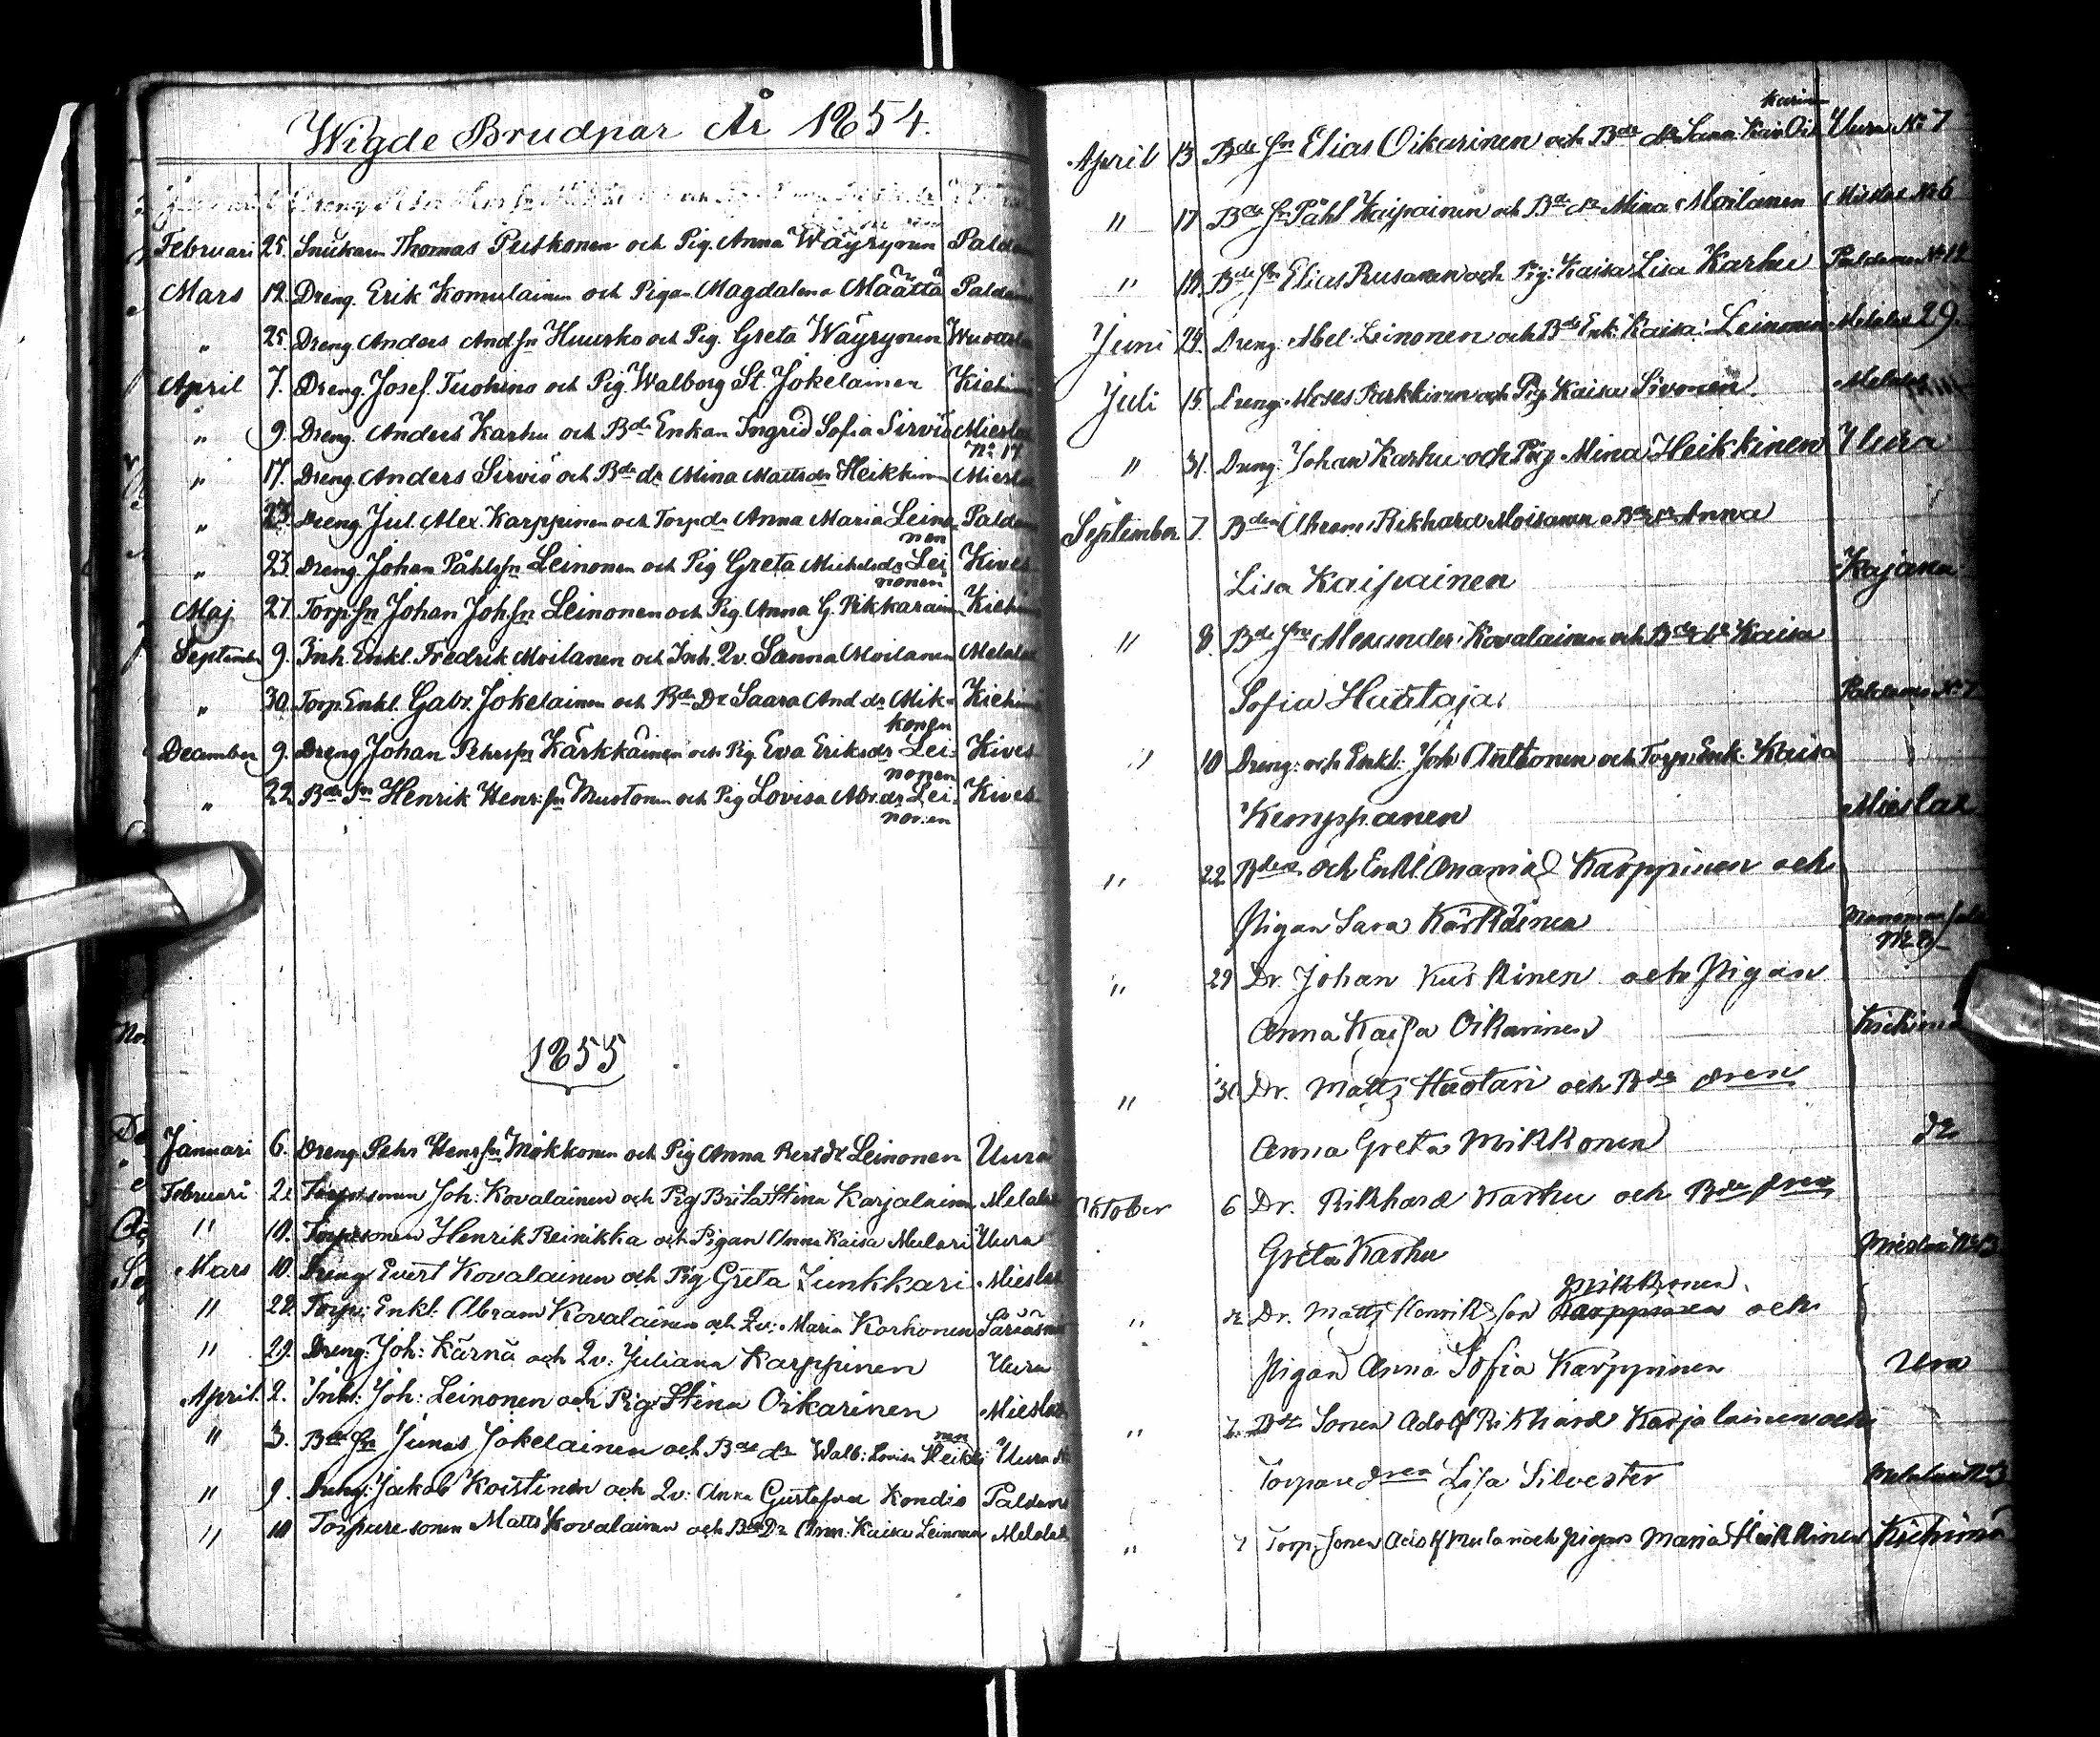 Wigde Brudpar År 1854.
Februari 25. Thomas Putkonen och Pig. Anna Wäyrynen Paldamo
Mars 12. Dreng. Erik Komulainen och Pigan Magdalena Määttä Paldamo
" 25. Dreng. Anders Andsn Huusko och Pig. Greta Wäyrynen
April 7. Dreng. Josef Tuohino och Pig. Walborg St. Jokelainen Kiehimä
" 9. Dreng. Anders Karhu och Bde Enkan Ingrid Sofia Sirviö Mieslax
No 17
" 17. Dreng. Anders Sirviö och Bde dr Mina Mattsdr Heikkinen Mieslax
" 23. Dreng. Jul. Alex. Karppinen och Torp dr Anna Maria Leino Paldamo
nen
" 23. Dreng. Johan Påhlssn Leinonen och Pig Greta Michelsdr Lei Kives
nonen
Maj 27. Torp. sn Johan Johsn Leinonen och Pig. Anna G. Pikkarain Kiehimä
September 9. Inh. Enkl. Fredrik Moilanen och Inh. Qv. Sanna Moilanen Melalax
" 30. Torp. Enkl. Gabr. Jokelainen och Bde Dr Saara And dr Mik- Kiehimä
konen
December 9. Dreng Johan Pehrssn Kärkkäinen och Pig. Eva Eriksdr Lei- Kives
nonen
" 22 Bde Sn Henrik Henr. sn Mustonen och Pig Lovisa Abr. dr Lei- Kives
nonen
1855
Januari 6. Dreng. Pehr Henrsn Mikkonen och Pig Anna Bert dr Leinonen Uura
Februari 2. Torparesonen Joh: Kovalainen och Pig Brita Stina Karjalainen Melalax
" 10. Torparesonen Henrik Reinikka och Pigan Anna Kaisa Mulari Uura
Mars 10. Dreng Evert Kovalainen och Pig Greta Junkkari Mieslax
" 22. Torp: Enkl: Abram Kovalainen och Qv: Maria Korhonen
" 29. Dreng: Joh: Kärnä och Qv: Juliana Karppinen Uura
April. 2. Inh: Joh: Leinonen och Pig: Stina Oikarinen Mieslax
nen
" 3. Bde sn Junas Jokelainen och Bde dr Walb: Lovisa Heikki Uura
" 9. Dreng: Jakob Koistinen och Qv: Anna Gustafva Kondio Paldamo
" 10 Torpare sonen Matts Kovalainen och Bde Dr Anna Kaisa Leinonen Melalax
karinen
April 13. Bde sn Elias Oikarinen och Bde dr Sanna Kais. Oi Uura No 7
" 17 Bde sn Påhl Kaipainen och Bde dr Mina Moilanen Mieslax No 6
" 18. Bde sn Elias Rusanen och Pig: Kaisa Lisa Karhu Paldamo No 12
Juni 24. Dreng: Abel Leinonen och Bde Enk: Kaisa Leinonen Melalax 29.
Juli 15. Dreng: Moses Parkkinen och Pig. Kaisa Sivonen. Melalax
" 31. Dreng: Johan Karhu och Pig Mina Heikkinen Uura
September 7. Bden Rikhard Moisanen o Bde dr Anna
Lisa Kaipainen Kajana
" 8. Bde sn Alexander Kovalainen och Bde dr Kaisa
Sofia Huotaja Paldamo No 7
" 10 Dreng: och Enkl: Joh Anttonen och Torp. Enk. Kaisa
Kemppanen Mieslax
" 22 Bden och Enkl. Ananias Karppinen och
Pigan Sara Kärkäinen
No 8
" 29 Dr. Johan Kuskinen och Pigan
Anna Kajsa Oikarinen Kiehimä
" 30 Dr. Matts Huotari och Bde dren
Anna Greta Mikkonen dr
Oktober 6 Dr. Rikhard Karhu och Bde dren
Greta Karhu
Mikkonen
" dr Dr. Matts Henriksson Karppinen och
Pigan Anna Sofia Karppinen Ura
" 7. Bde Sonen Adolf Rikhard Karjalainen och
Torparedren Lisa Silvester
" 7 Torp. Sonen Adolf Mulari och Pigan Maria Heikkinen Kiehimä